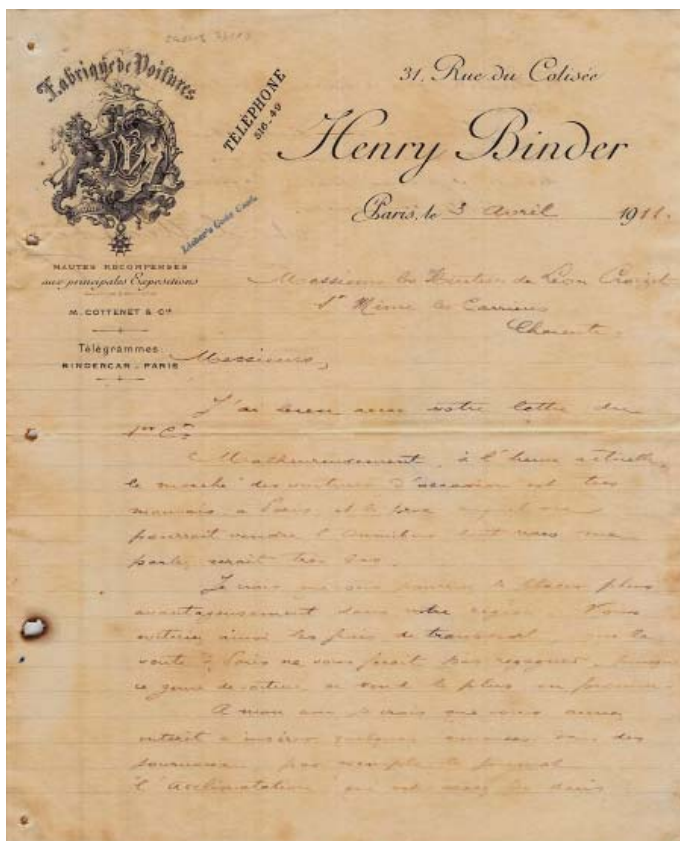 Fabrique de Voitures
TÉLÉPHONE
516-49
31, Rue du Colisée
Henry Binder
Paris, le 3 avril 1911.
Lieber's Code Used.
HAUTES RECOMPENSES
aux principales Expositions
M. COTTENET & Cie
Télégrammes:
BINDERCAR - PARIS
Messieurs les Héritiers de Léon Croizet
St Même les Carrières
Charente.
Messieurs,
J'ai bien reçu votre lettre du
1er Ct
Malheureusement, à l'heure actuelle,
le marché des voitures d'occasion est très
mauvais à Paris, et le prix auquel on
pourrait vendre l'omnibus dont vous me
parlez serait très bas.
Je crois que vous pourriez le placer plus
avantageusement dans votre région. Vous
éviteriez ainsi les frais de transport, que la
vente à Paris ne vous ferait pas regagner,
ce genre de voiture se vend le plus en province.
A mon avis je crois que vous auriez
intérêt à insérer quelques annonces dans des
journaux, par exemple le journal
l'Acclimatation qui est dans